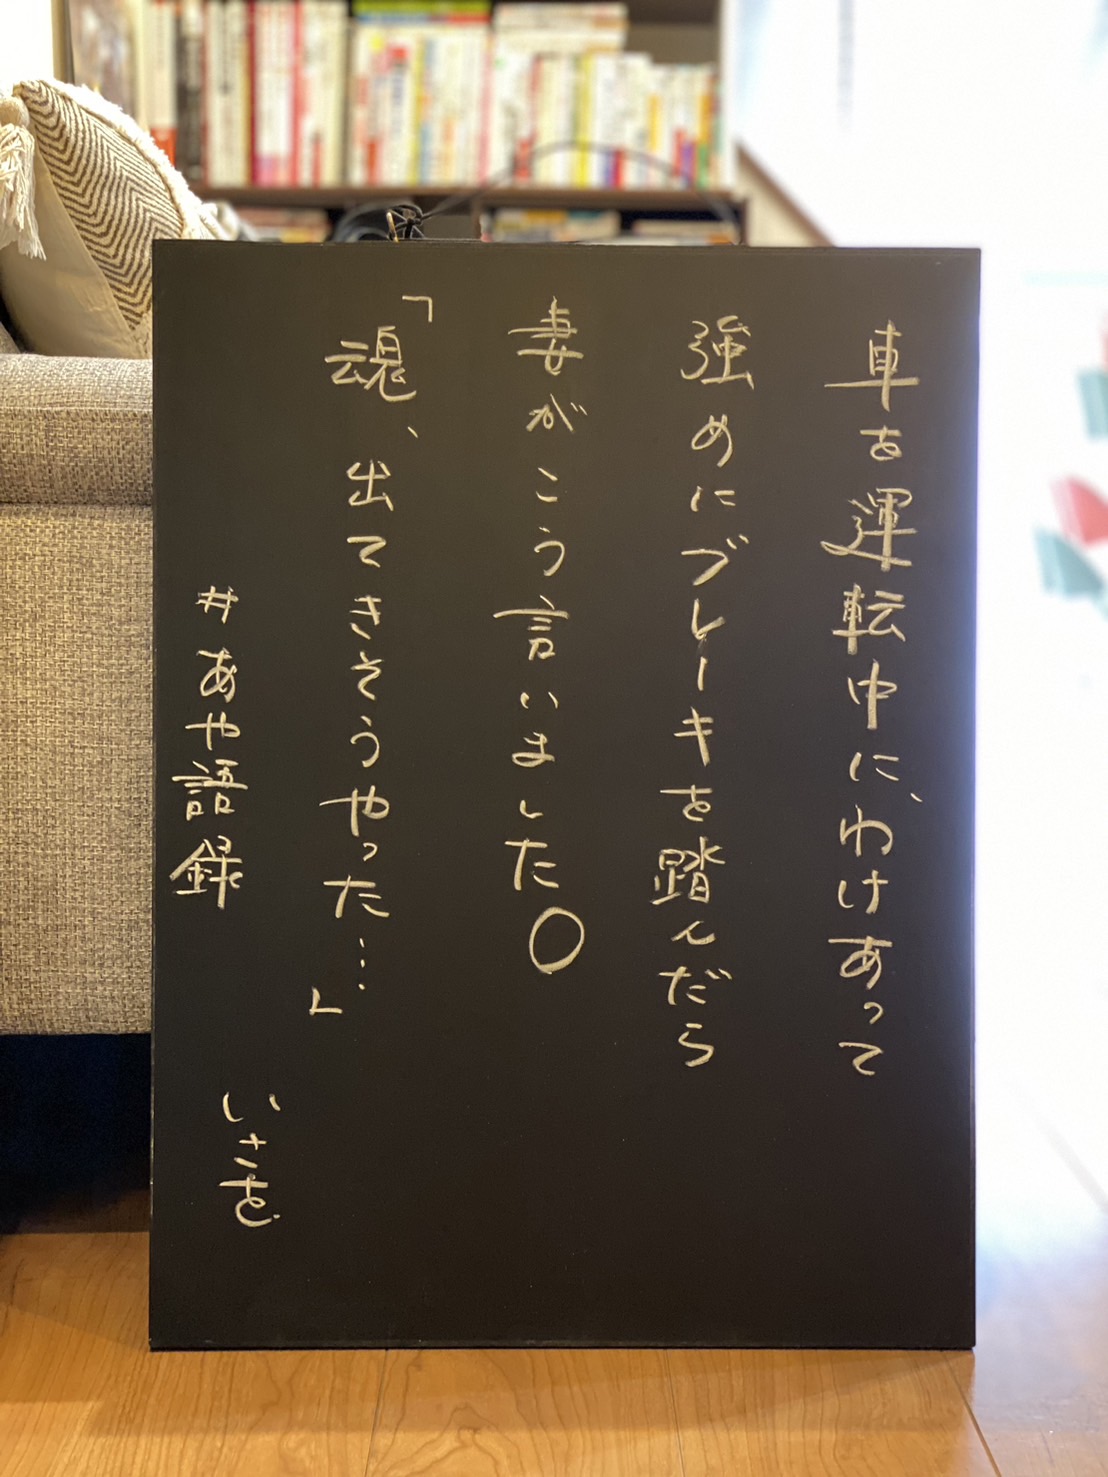 車を運転中に、わけあって
強めにブレーキを踏んだら
妻がこう言いました○
「魂、出てきそうやった…」
#あや語録
いさを